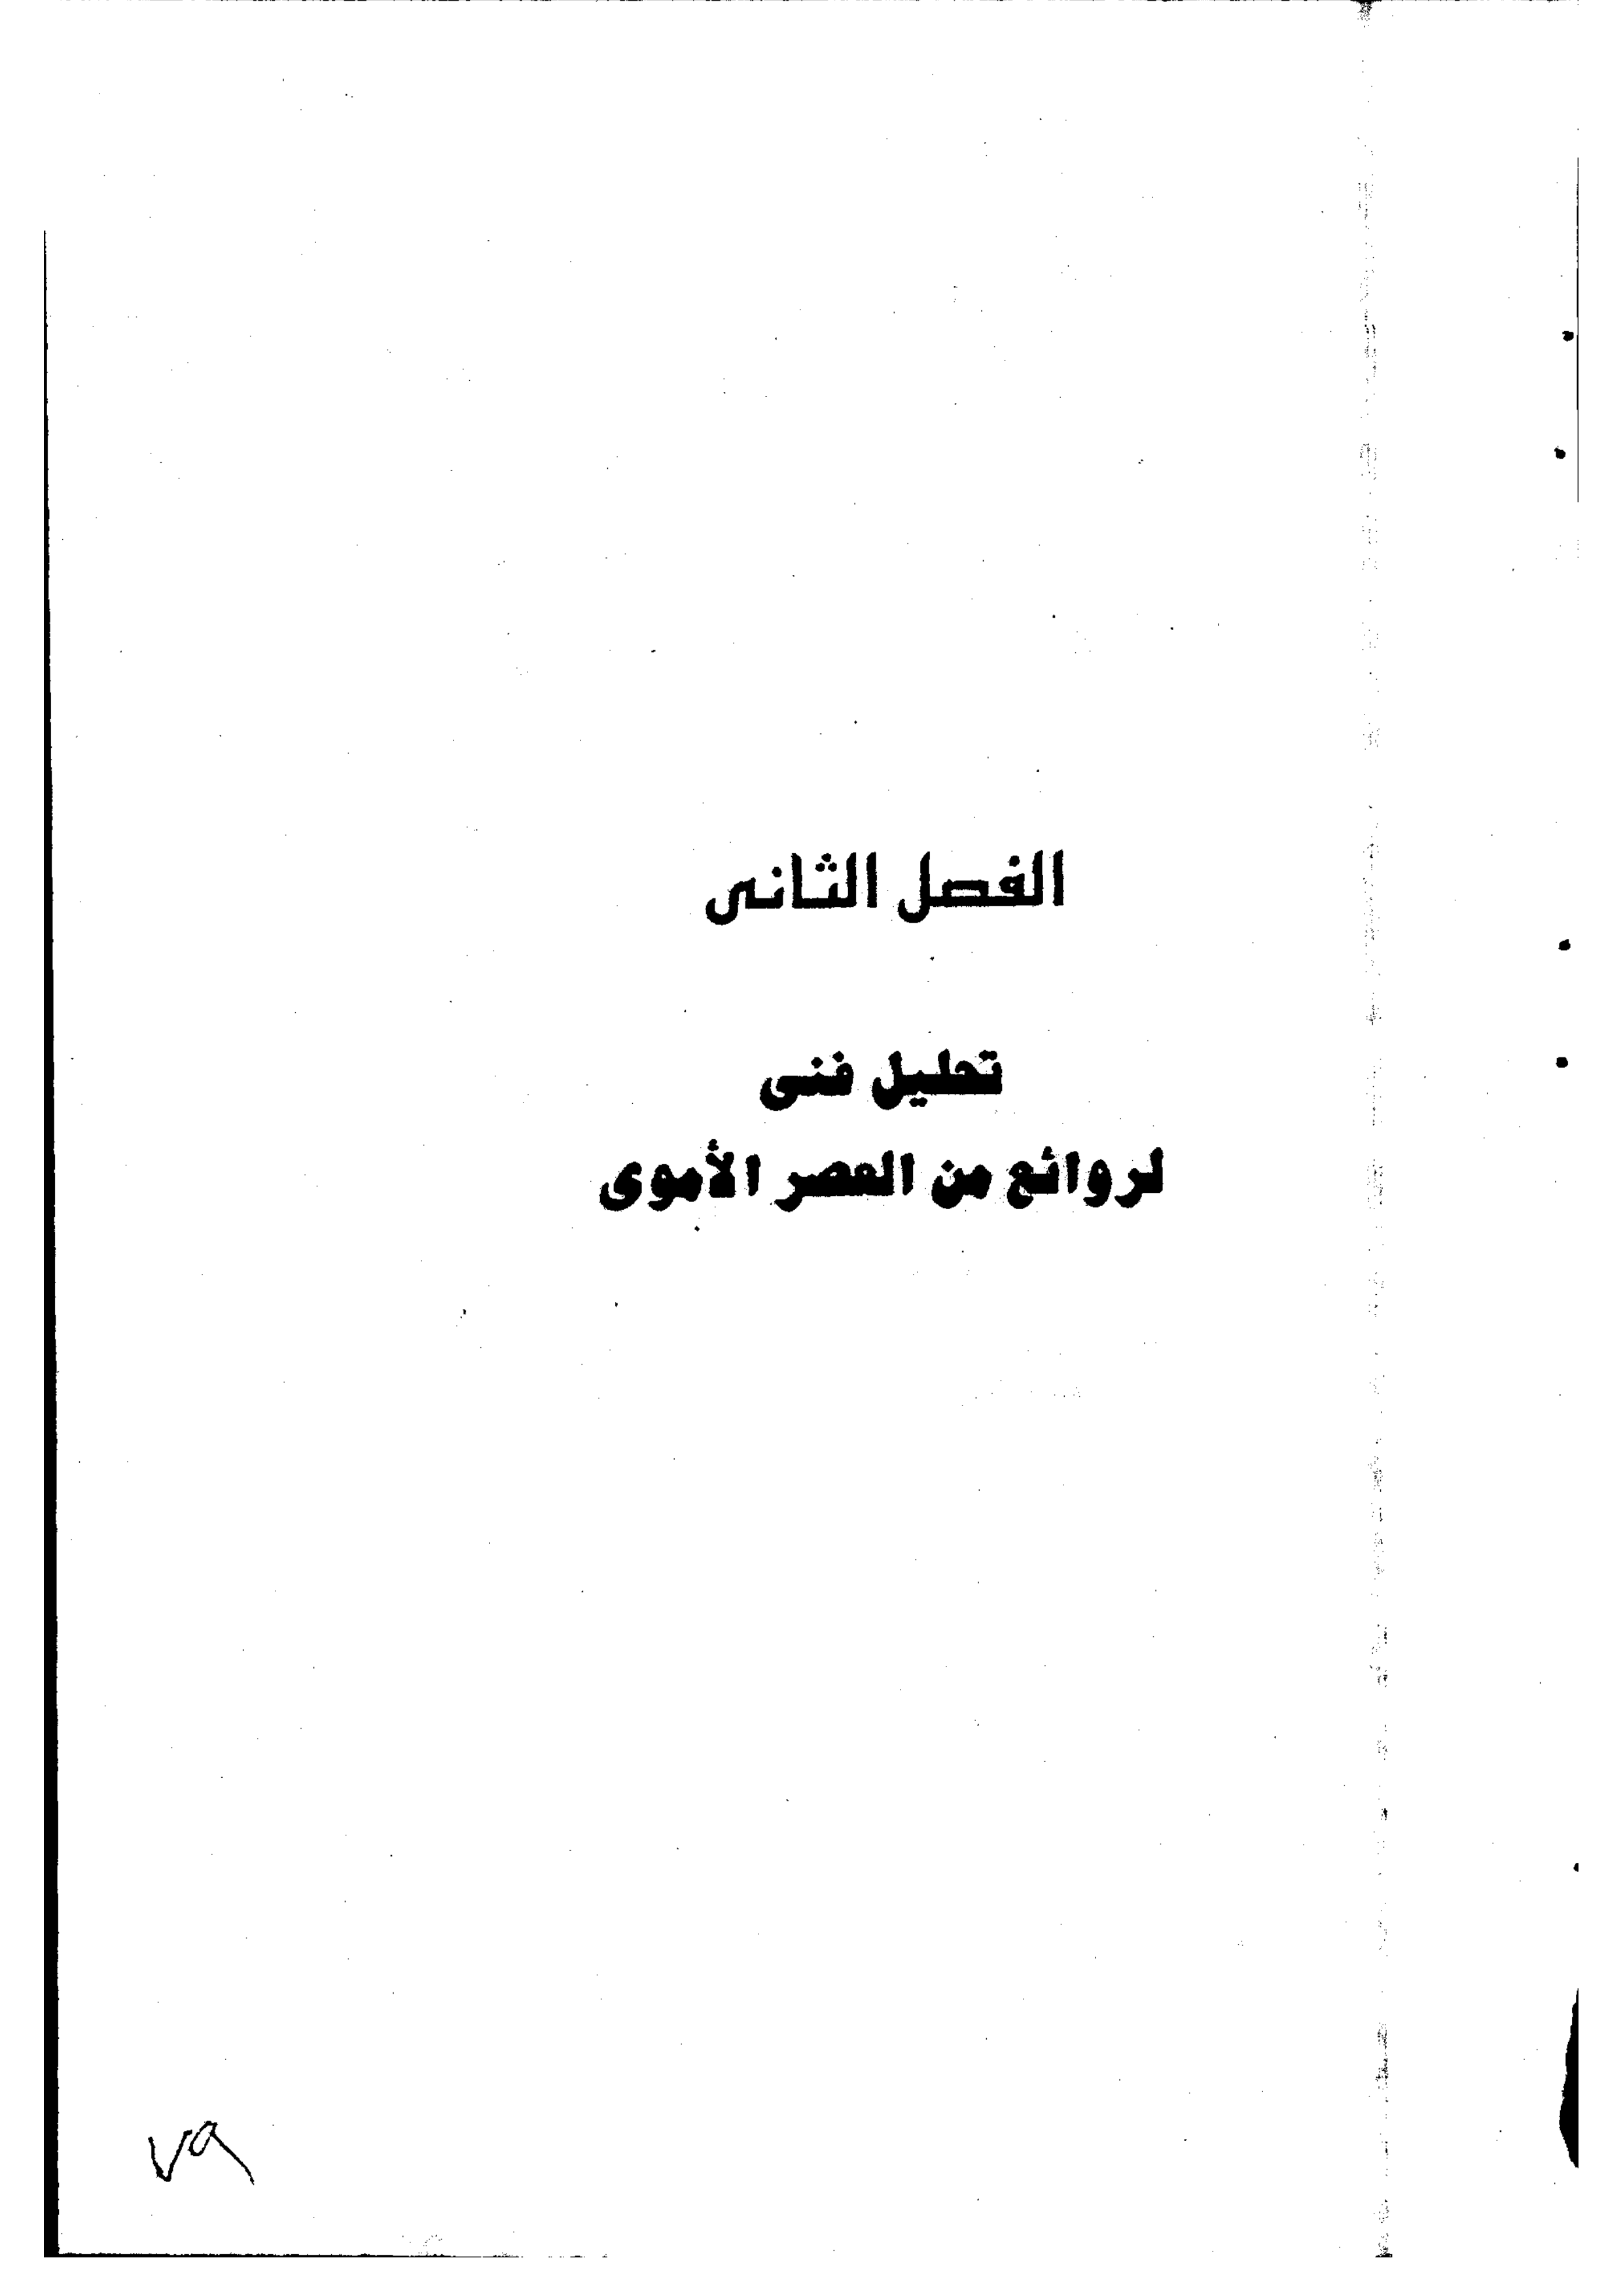 الفصل الثانى
تحليل فنى
لروائع من العصر الأموى
٧٩